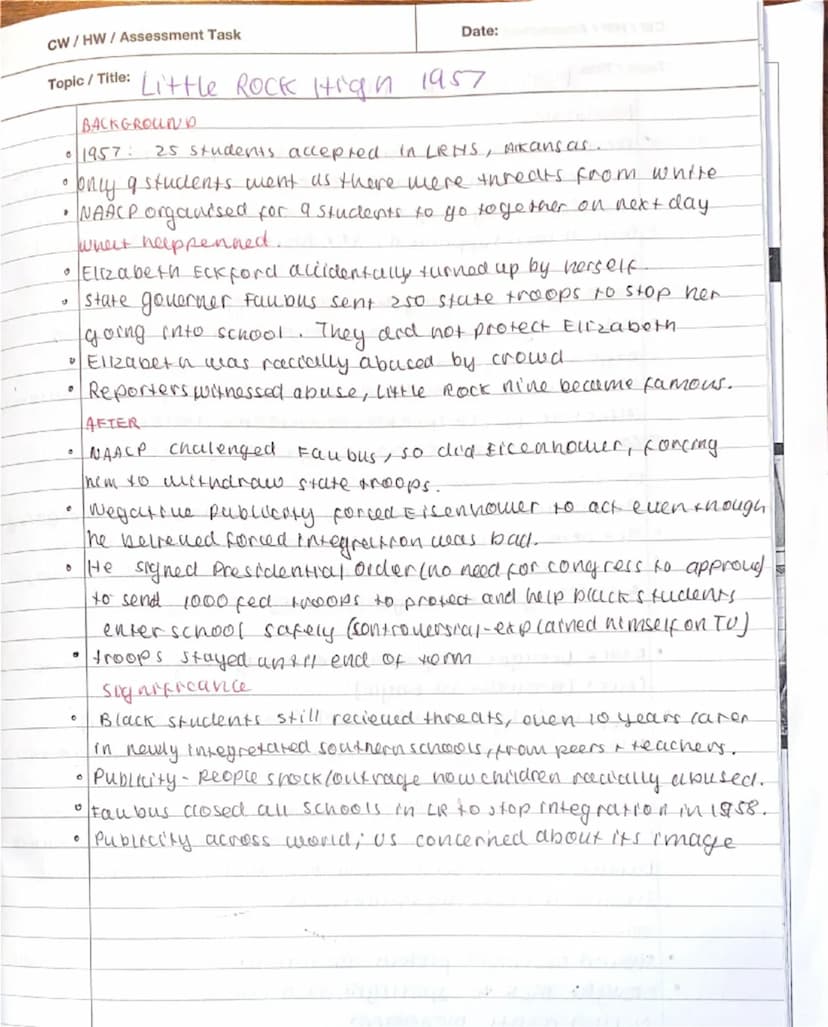 CW / HW / Assessment Task
Date:
Topic / Title: Little ROCK High 1957
BACKGROUND
• 1957: 25 students accepted in LRHS, Arkansas.
• only 9 students went as there were threats from white
• NAACP organised for 9 students to go together on next day
what happenned.
• Elizabeth Eckford accidentally turned up by herself.
• state governer Faubus sent 250 state troops to stop her
going into school. They did not protect Elizabeth
• Elizabeth was racially abused by crowd
• Reporters witnessed abuse, Little Rock nine became famous.
AFTER
• NAACP challenged Faubus, so did Eisenhower, forcing
him to withdraw state troops.
• Negative publicity forced Eisenhower to act even though
he believed forced integration was bad.
• He signed Presidential Order (no need for congress to approve)
to send 1000 fed troops to protect and help black students
enter school safely (controversial-explained himself on TV)
• troops stayed until end of term
significance
• Black students still recieved threats, over 10 years later
in newly integretated southern schools, from peers + teachers.
• Publicity - People shock/outrage how children racially abused.
• Faubus closed all schools in LR to stop integration in 1958.
• Publicity across world; US concerned about its image